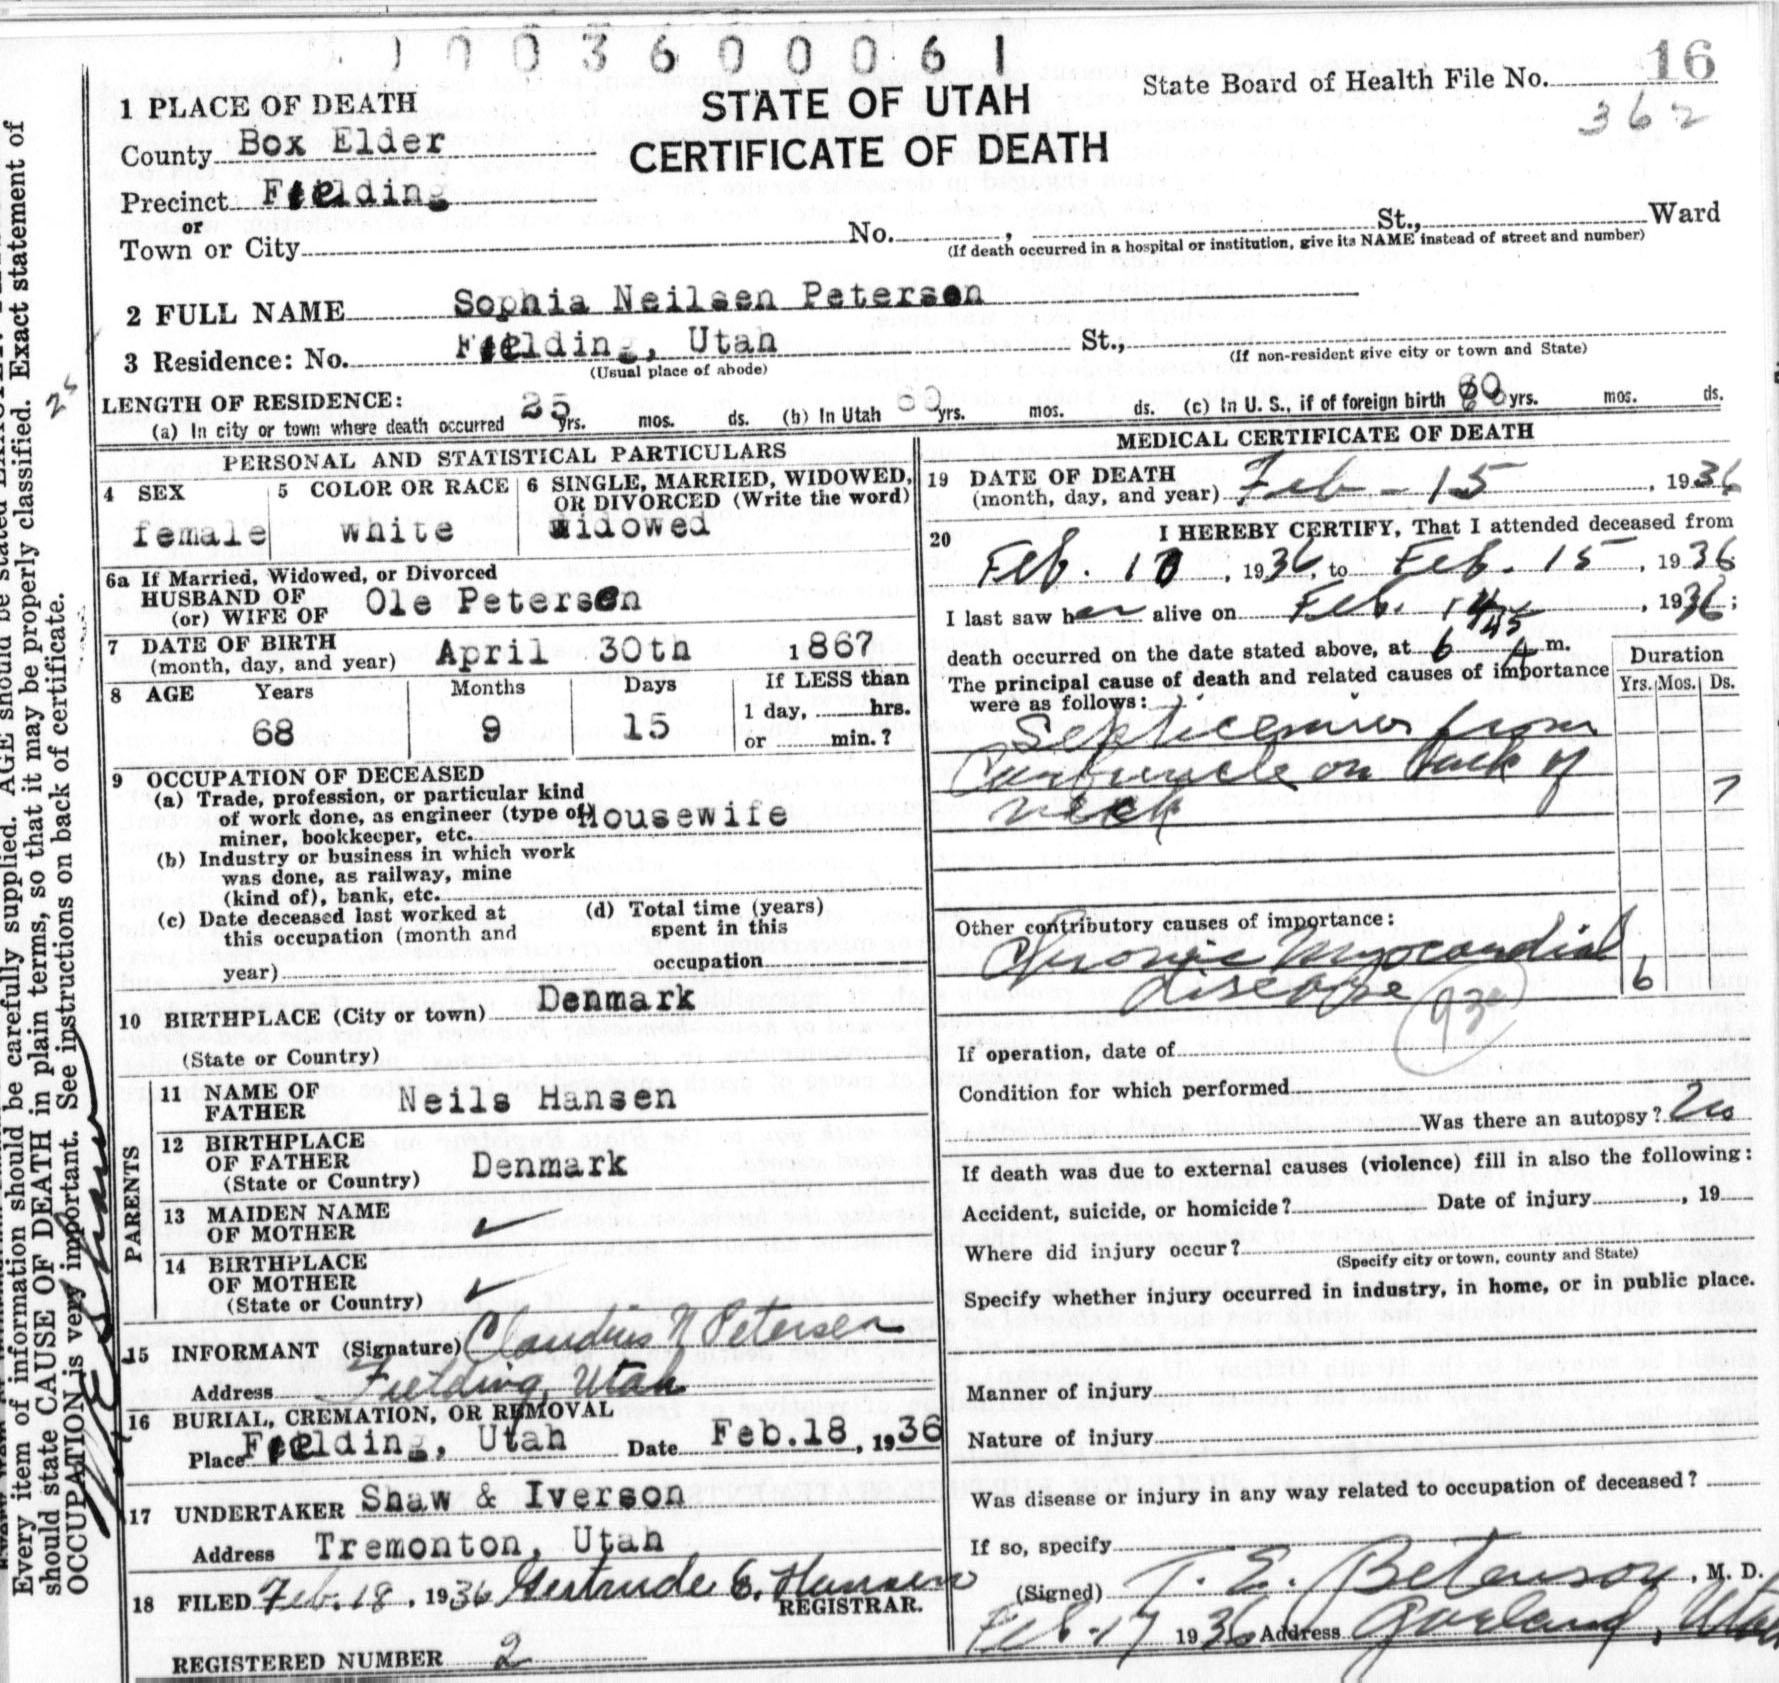 1003600061
16
State Board of Health File No.
362
STATE OF UTAH
CERTIFICATE OF DEATH
1 PLACE OF DEATH
County Box Elder
Precinct Fielding
or
Town or City No. , St., Ward
(If death occurred in a hospital or institution, give its NAME instead of street and number)
2 FULL NAME Sophia Neilsen Petersen
3 Residence: No. Fielding, Utah St.,
(Usual place of abode) (If non-resident give city or town and State)
LENGTH OF RESIDENCE:
(a) In city or town where death occurred 25 yrs. mos. ds. (b) In Utah 60 yrs. mos. ds. (c) In U. S., if of foreign birth 60 yrs. mos. ds.
PERSONAL AND STATISTICAL PARTICULARS
4 SEX
female
5 COLOR OR RACE
white
6 SINGLE, MARRIED, WIDOWED,
OR DIVORCED (Write the word)
widowed
6a If Married, Widowed, or Divorced
HUSBAND OF
(or) WIFE OF Ole Petersen
7 DATE OF BIRTH
(month, day, and year) April 30th 1867
8 AGE Years Months Days If LESS than
1 day, hrs.
68 9 15 or min.?
9 OCCUPATION OF DECEASED
(a) Trade, profession, or particular kind
of work done, as engineer (type of Housewife
miner, bookkeeper, etc.
(b) Industry or business in which work
was done, as railway, mine
(kind of), bank, etc.
(c) Date deceased last worked at
this occupation (month and
year)
(d) Total time (years)
spent in this
occupation
10 BIRTHPLACE (City or town) Denmark
(State or Country)
PARENTS
11 NAME OF
FATHER Neils Hansen
12 BIRTHPLACE
OF FATHER Denmark
(State or Country)
13 MAIDEN NAME
OF MOTHER ✓
14 BIRTHPLACE
OF MOTHER ✓
(State or Country)
15 INFORMANT (Signature) Claudius N Petersen
Address Fielding, Utah
16 BURIAL, CREMATION, OR REMOVAL
Place Fielding, Utah Date Feb. 18, 1936
17 UNDERTAKER Shaw & Iverson
Address Tremonton, Utah
18 FILED Feb. 18, 1936 Gertrude C. Hansen
REGISTRAR.
REGISTERED NUMBER 2
MEDICAL CERTIFICATE OF DEATH
19 DATE OF DEATH
(month, day, and year) Feb - 15, 1936
20 I HEREBY CERTIFY, That I attended deceased from
Feb. 10, 1936, to Feb. 15, 1936
I last saw her alive on Feb. 14, 1936;
death occurred on the date stated above, at 6 45 A m.
The principal cause of death and related causes of importance
were as follows:
Duration
Yrs. Mos. Ds.
Septicemia from
Carbuncle on back of
neck 7
Other contributory causes of importance:
Chronic Myocardial
disease 6
If operation, date of
Condition for which performed
Was there an autopsy? No
If death was due to external causes (violence) fill in also the following:
Accident, suicide, or homicide? Date of injury , 19
Where did injury occur?
(Specify city or town, county and State)
Specify whether injury occurred in industry, in home, or in public place.
Manner of injury
Nature of injury
Was disease or injury in any way related to occupation of deceased?
If so, specify
(Signed) T. E. Betenson, M. D.
Feb-17 1936 Address Garland, Utah
Every item of information should be carefully supplied. AGE should be stated EXACTLY.
should state CAUSE OF DEATH in plain terms, so that it may be properly classified. Exact statement of
OCCUPATION is very important. See instructions on back of certificate.